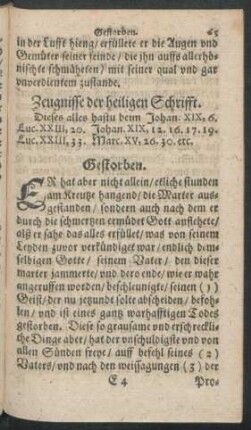 Gestorben. 65
in der Lufft hieng/ erfüllete er die Augen und
Gemüter seiner feinde/ die jhn auffs allerhö-
nischte schmäheten/ mit seiner qual und gar
unverdientem zustande.
Zeugnisse der heiligen Schrifft.
Dieses alles hastu beym Johan. XIX, 6.
Luc. XXIII, 20. Johan. XIX, 12. 16. 17. 19.
Luc. XXIII, 33. Marc. XV, 26. 30. etc.
Gestorben.
ER hat aber nicht allein/ etliche stunden
am Kreutze hangend/ die Marter auss-
gestanden/ sondern auch nach dem er
durch die schmertzen ermüdet Gott anflehete/
alß er sahe das alles erfüllet/ was von seinem
Leyden zuvor verkündiget war/ endlich dem-
selbigen Gotte/ seinem Vater/ den dieser
marter jammerte/ und dero ende/ wie er wahr
angeruffen worden/ beschleunigte/ seinen (1)
Geist/ der nu jetzundt solte abscheiden/ befoh-
len/ und ist eines gantz warhafftigen Todes
gestorben. Diese so grausame und erschreckli-
che Dinge aber/ hat der unschuldigste und von
allen Sünden freye/ auff befehl seines (2)
Vaters/ und nach den weissagungen (3) der
E 4 Pro-